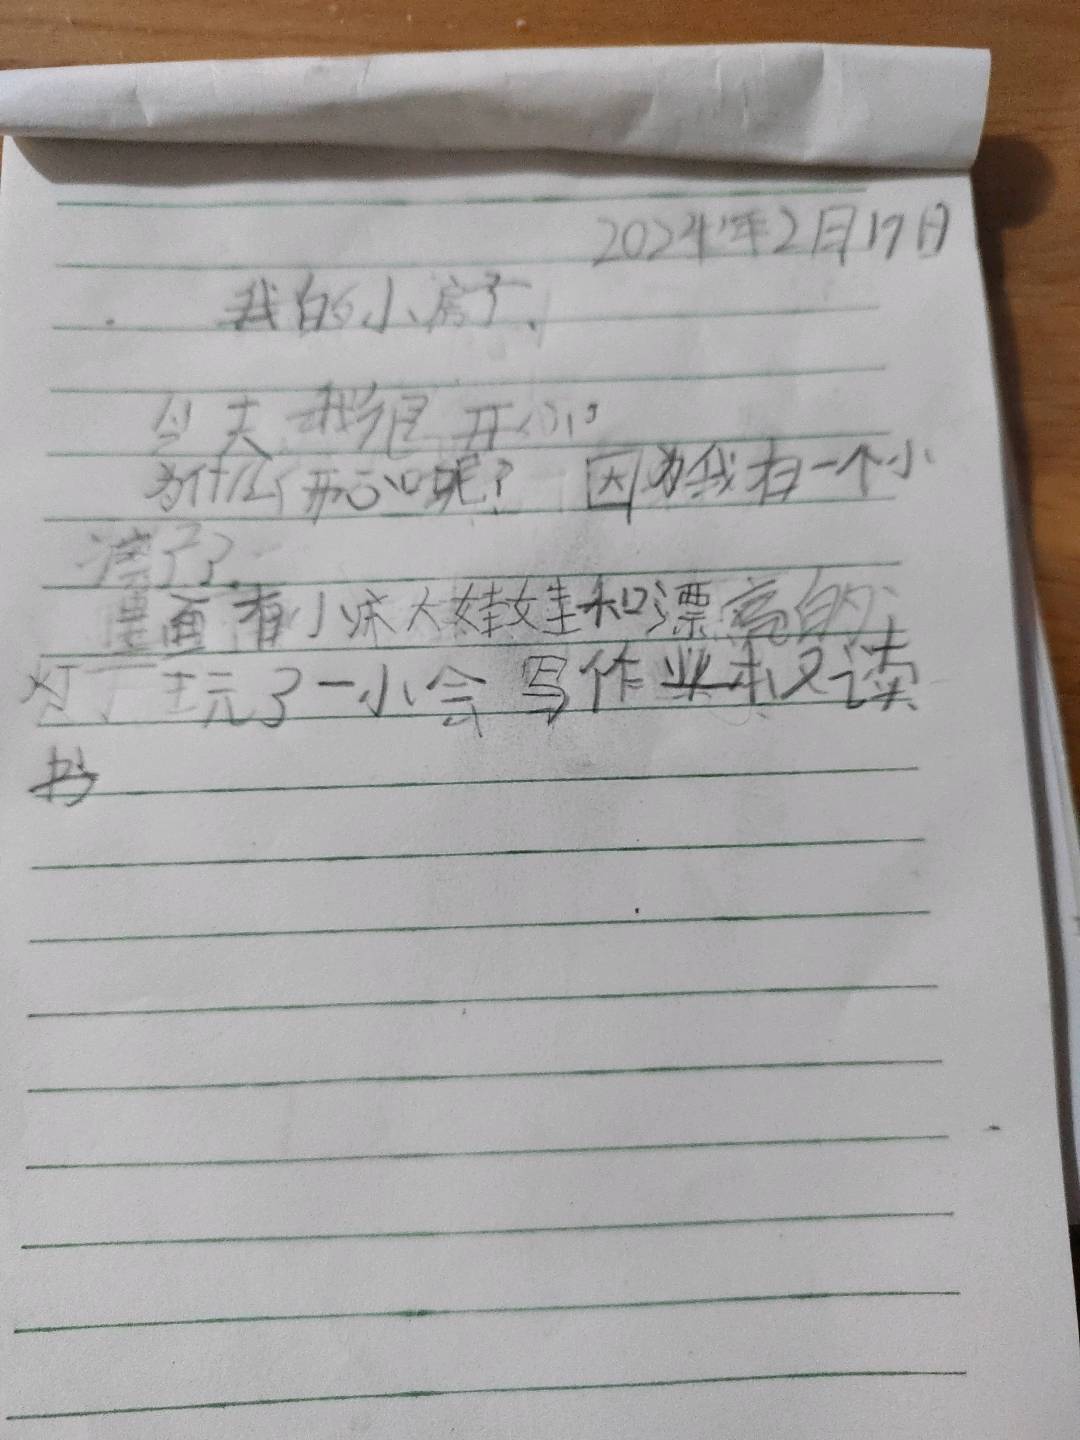 2024年2月17日
我的小房子.
今天我很开心。
为什么开心呢？因为我有一个小
房子了.
里面有小床大娃娃和漂亮的
灯了玩了一小会写作业本又读
书